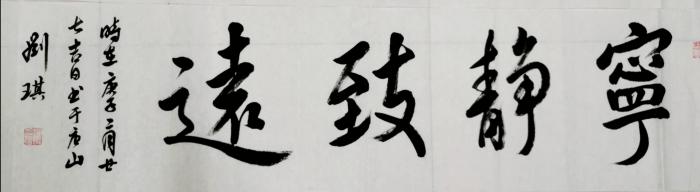 寧靜致遠
時在庚子二月廿
七吉日书于唐山
劉琪